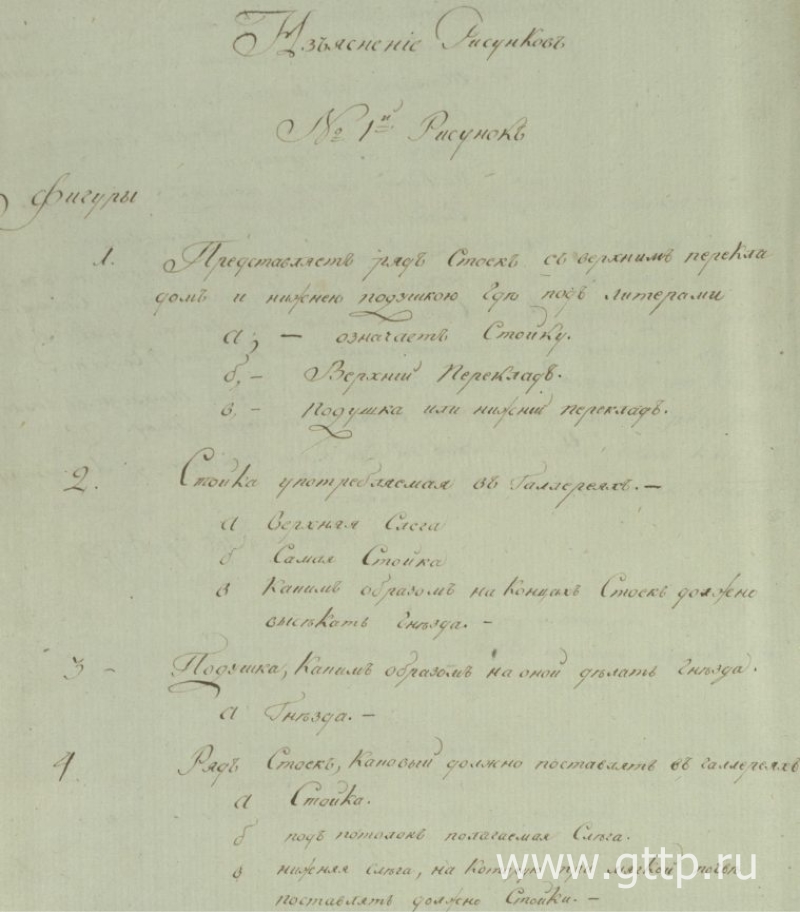 Изъясненіе Рисунковъ
№ 1й Рисунокъ
Фигуры
1. Представляетъ рядъ Стоекъ съ верхнимъ перекла
домъ и нижнею подушкою Гдѣ подъ литерами
а, — означаетъ Стойку.
б, - Верхній Перекладъ.
в, - Подушка или нижній перекладъ.
2. Стойка употребляемая въ Галлереяхъ. —
а Верхняя Слега
б Самая Стойка
в Какимъ образомъ на Концахъ Стоекъ должно
высѣкать Гнѣзда. -
3 - Подушка, Какимъ образомъ на оной дѣлать Гнѣзда.
а Гнѣзда. —
4 Рядъ Стоекъ, Каковый должно поставлять въ галлереяхъ
а Стойка.
б подъ потолокъ полагаемая Слѣга.
в нижняя слѣга, на Которую при мягкой почвѣ
поставлять должно Стойки. —
www.gttp.ru